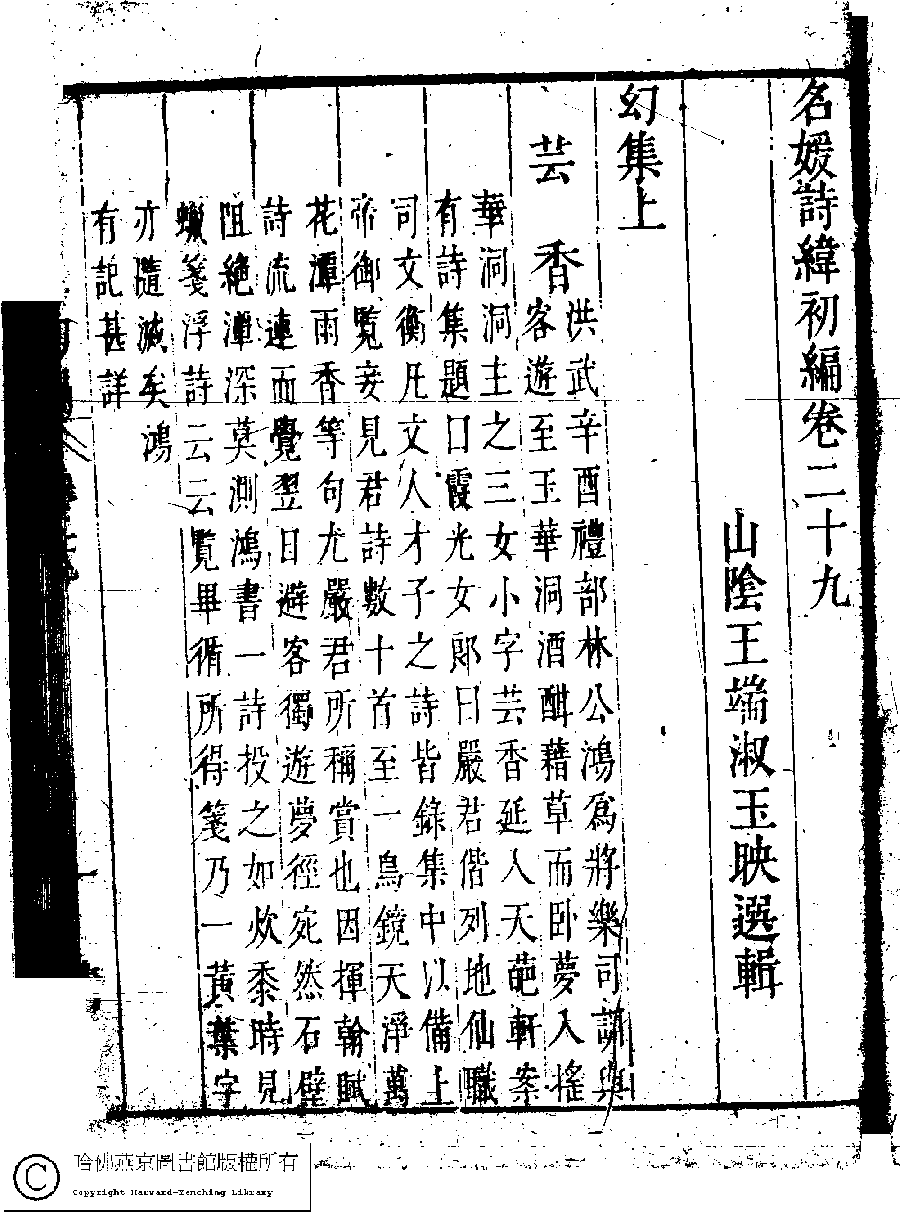 名媛詩緯初編卷二十九
山陰王端淑玉映選輯
幻集上
芸香
洪武辛酉禮部林公鴻爲將樂司訓與
客遊至玉華洞酒酣藉草而卧夢入搖
華洞洞主之三女小字芸香延入天葩軒案
有詩集題曰霞光女郎曰嚴君偕列地仙職
司文衡凡文人才子之詩皆錄集中以備上
帝御覧妾見君詩數十首至一鳥鏡天淨萬
花潭雨香等句尤嚴君所稱賞也因揮翰賦
詩流連而覺翌日避客獨遊夢徑宛然石壁
阻絶潭深莫測鴻書一詩投之如炊黍時見
蠟箋浮詩云云覧畢循所得箋乃一黃葉字
亦隨滅矣鴻
有記甚詳
哈佛燕京圖書館版權所有
Copyright Harvard-Yenching Library